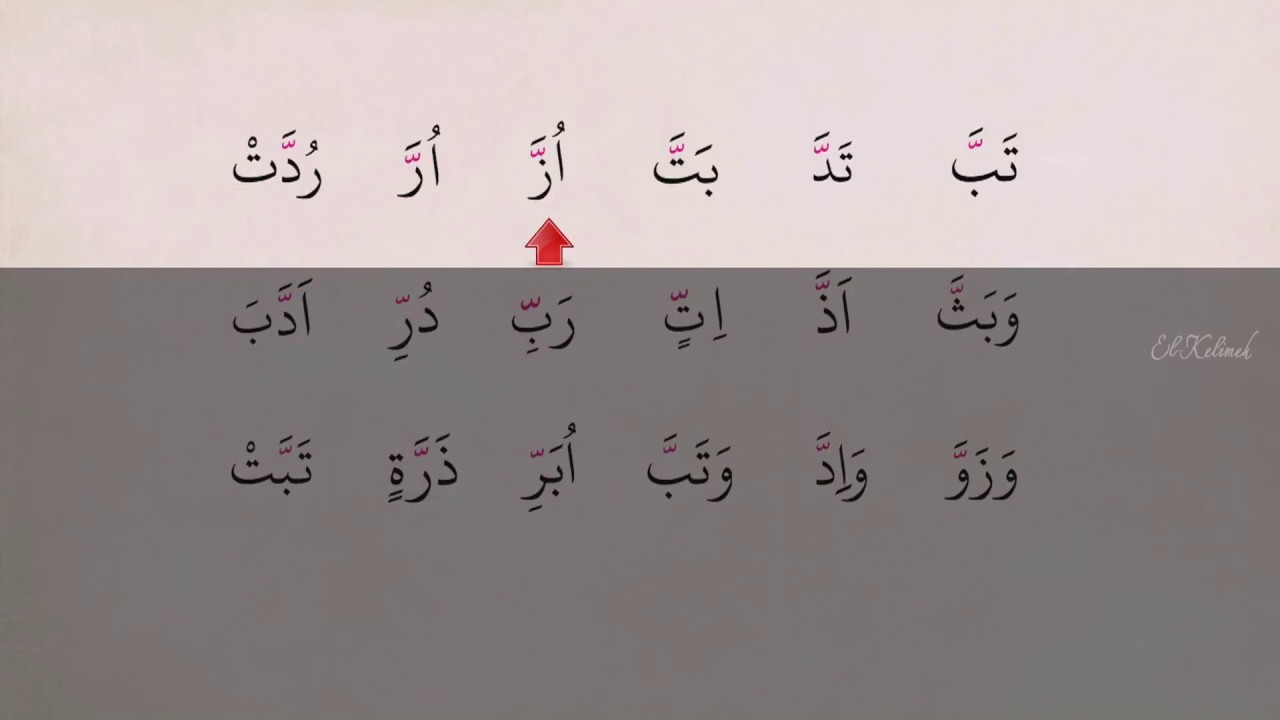 تَبَّ تَدَّ بَتَّ اُزَّ اُرَّ رُدَّتْ
وَبَثَّ اَذَّ اِتٍّ رَبِّ دُرِّ اَدَّبَ
El-Kelimeh
وَزَوَّ وَاِدَّ وَتَبَّ اُبَرِّ ذَرَّةٍ تَبَّتْ